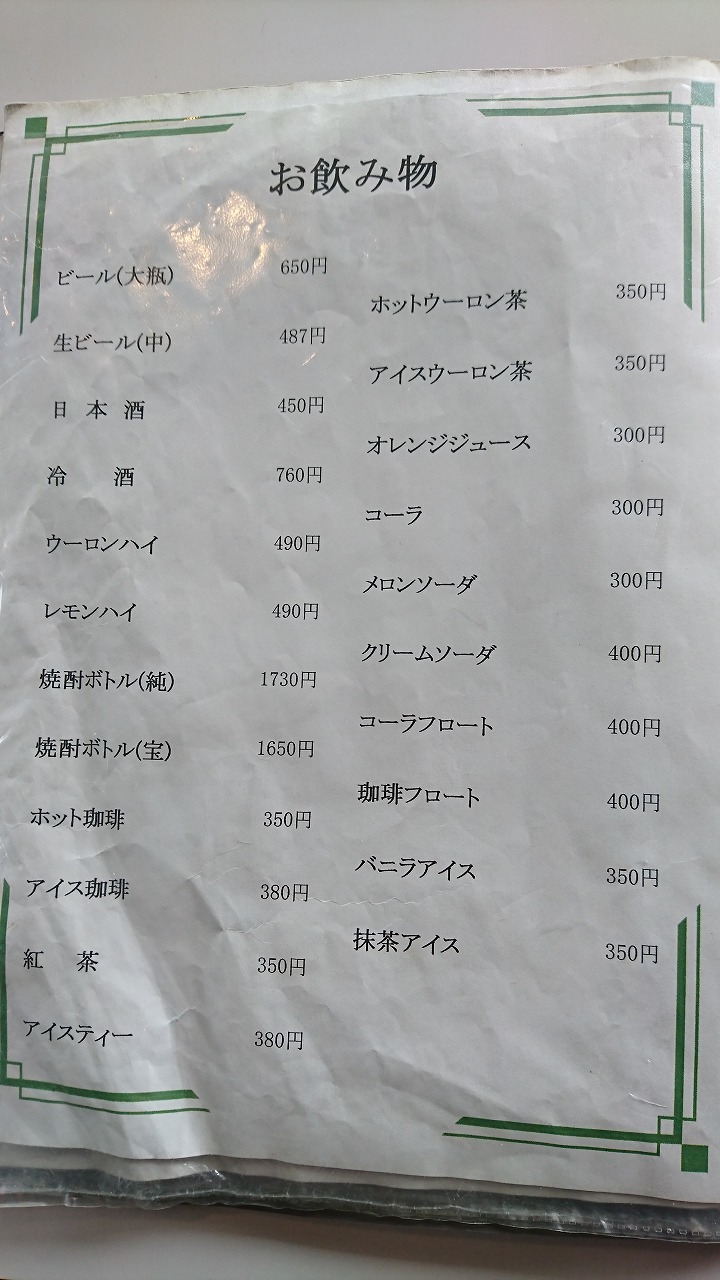 お飲み物
ビール(大瓶) 650円
生ビール(中) 487円
日 本 酒 450円
冷 酒 760円
ウーロンハイ 490円
レモンハイ 490円
焼酎ボトル(純) 1730円
焼酎ボトル(宝) 1650円
ホット珈琲 350円
アイス珈琲 380円
紅 茶 350円
アイスティー 380円
ホットウーロン茶 350円
アイスウーロン茶 350円
オレンジジュース 300円
コーラ 300円
メロンソーダ 300円
クリームソーダ 400円
コーラフロート 400円
珈琲フロート 400円
バニラアイス 350円
抹茶アイス 350円